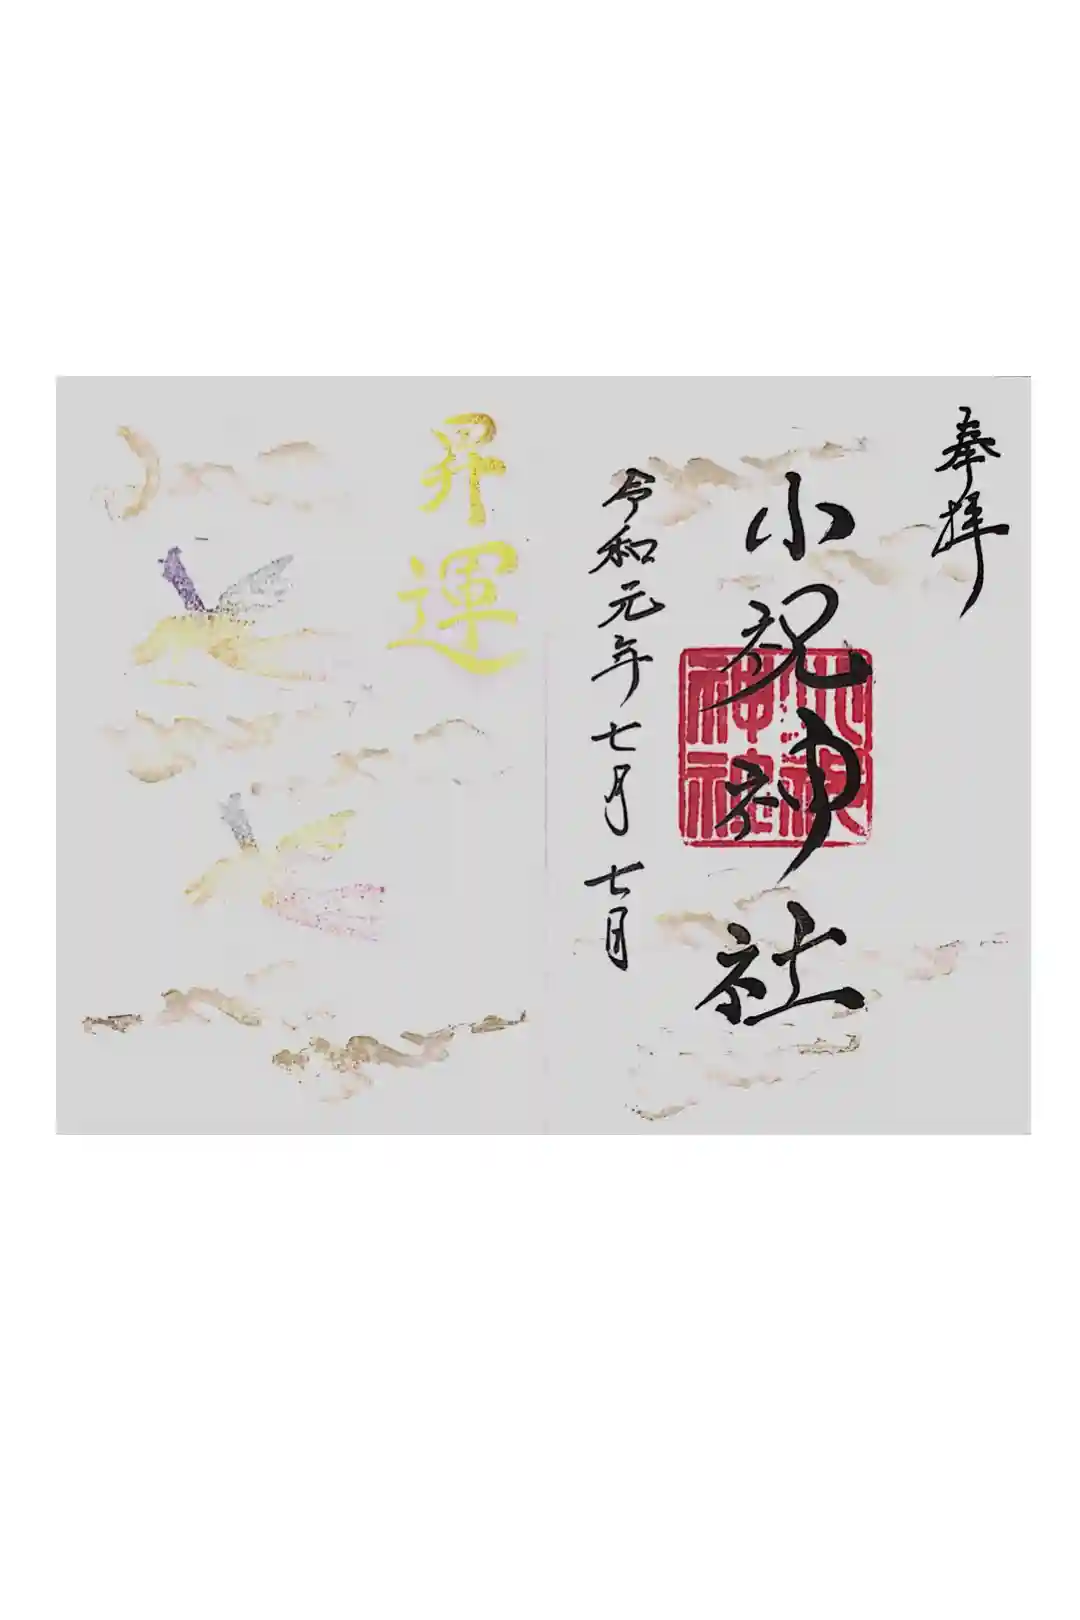 奉拝
小祝神社
小祝神社
令和元年七月七日
昇運